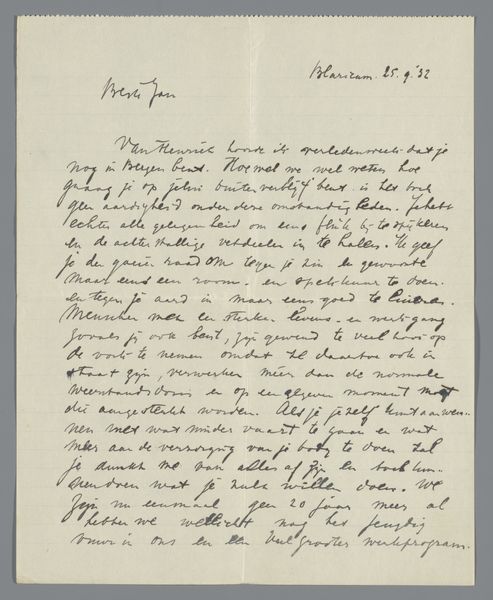 Blaricum. 25.9.'32
Beste Jan
Van Henriet hoorde ik verledenweek dat je
nog in Bergen bent. Hoewel we wel weten hoe
graag je op jelui buitenverblijf bent is het toch
geen aardigheid onder deze omstandigheden. Je hebt
echter alle gelegenheid om eens flink bij te spijkeren
en de achterstallige vetdeelen in te halen. Ik geef
je den goeien raad om tegen je zin en gewoonte
maar eens een room- en spekkuur te doen.
en tegen je aard in maar eens goed te luieren.
Menschen met een sterken levens- en werkgang
zooals jij ook bent, zijn gewend te veel hooi op
de vork te nemen omdat ze daartoe ook in
staat zijn, verwerken méér dan de normale
weerstandsdosis en op een gegeven moment moet
die aangesterkt worden. Als je jezelf kunt aanwen-
nen met wat minder vaart te gaan en wat
meer aan de verzorging van je body te doen zal
je dunkt me van alles af zijn en toch kun-
nen doen wat je zult willen doen. We
zijn nu eenmaal geen 20 jaar meer al
hebben we wellicht nog het jeugdig
vuur in ons en een veel grooter werkprogram.